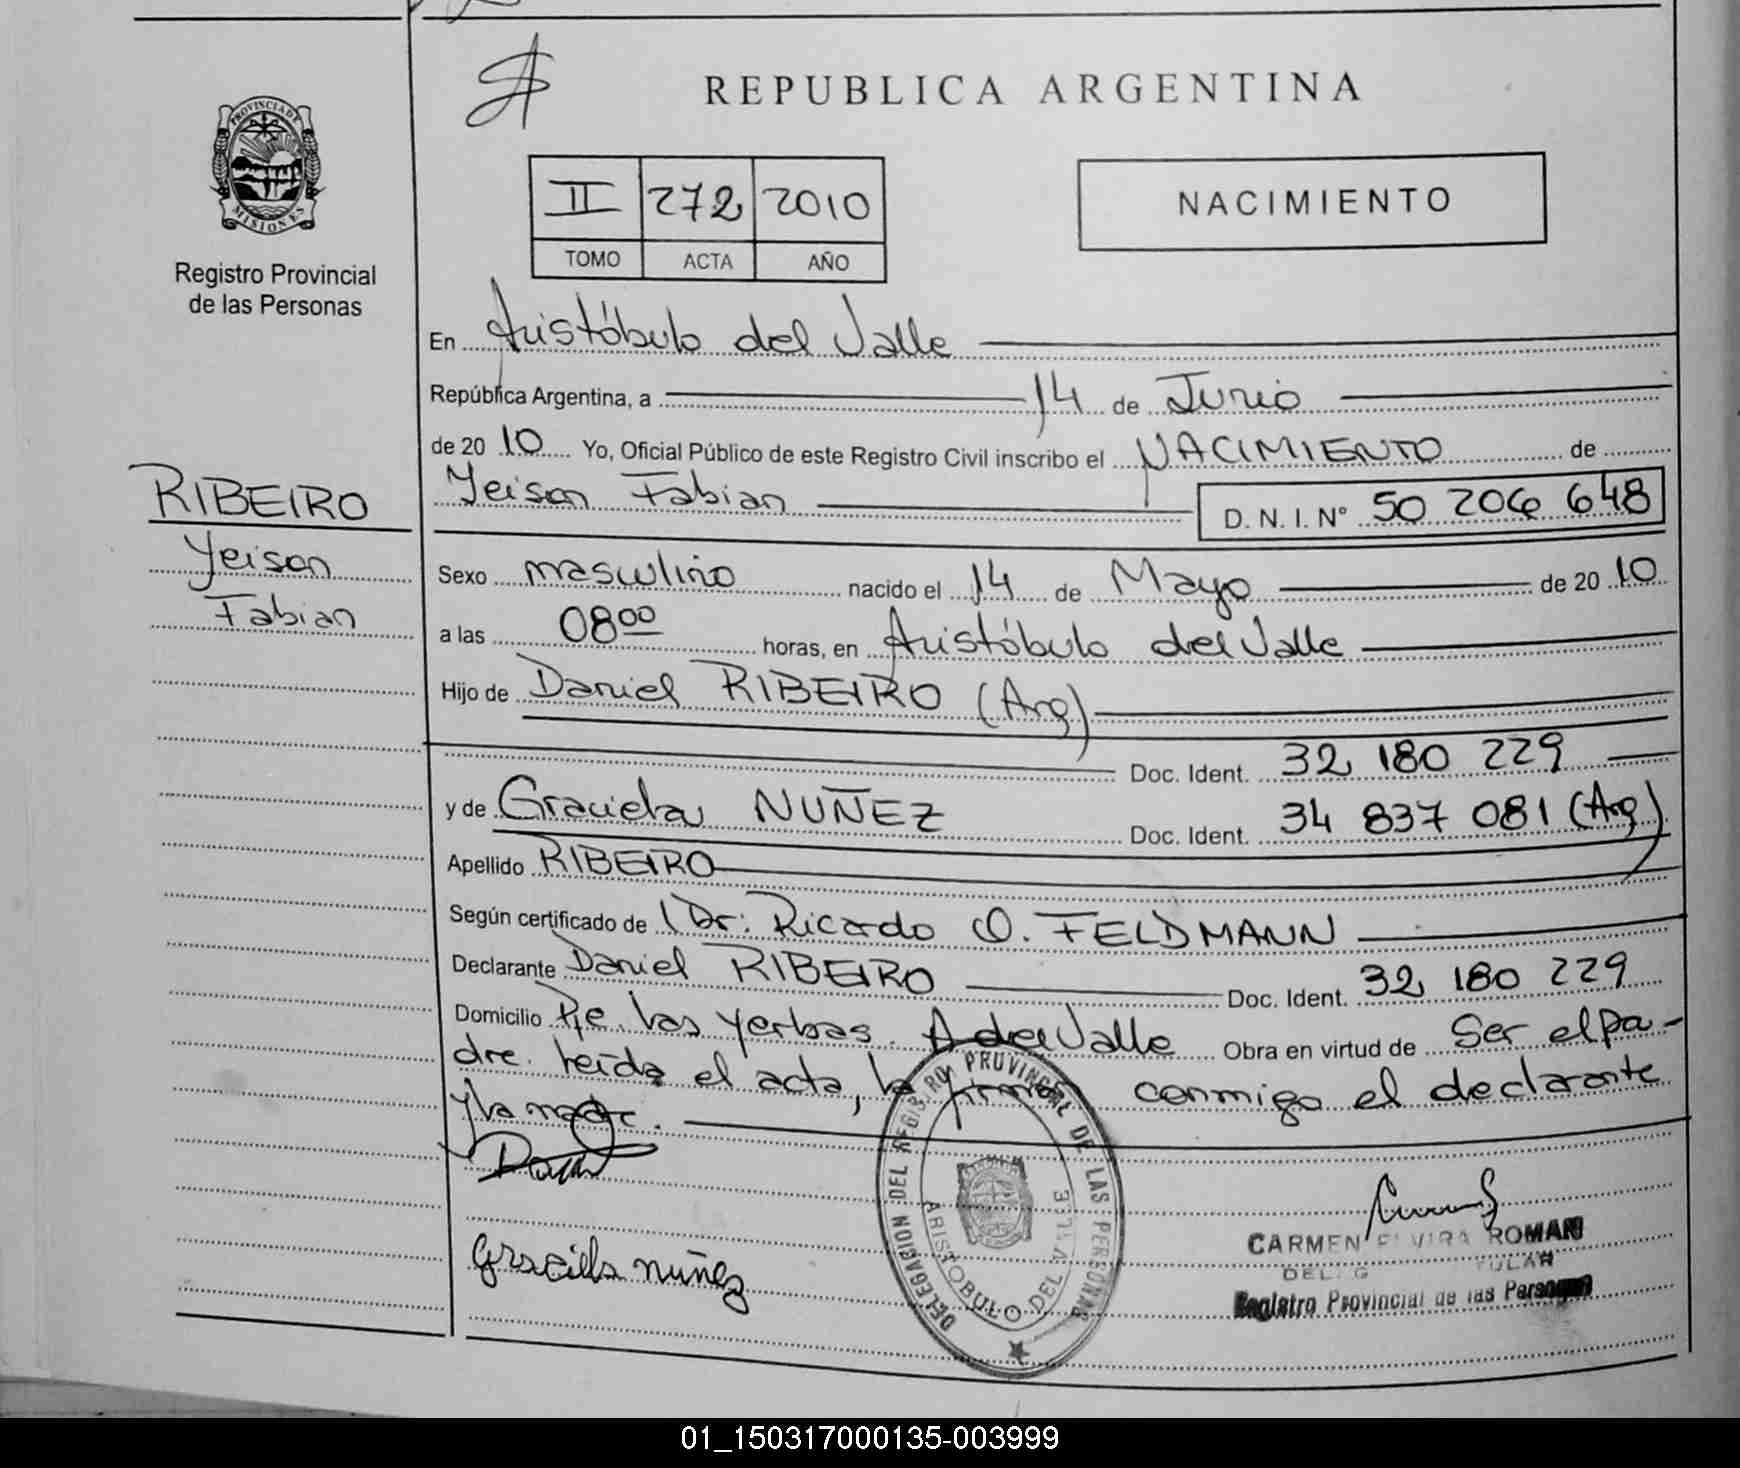 REPUBLICA ARGENTINA
PROVINCIA DE
MISIONES
Registro Provincial
de las Personas
II 272 2010
TOMO ACTA AÑO
NACIMIENTO
En Aristóbulo del Valle
República Argentina, a 14 de Junio
de 20 10 Yo, Oficial Público de este Registro Civil inscribo el NACIMIENTO de
RIBEIRO
Yeison
Fabian
Yeison Fabian D. N. I. Nº 50 206 648
Sexo masculino nacido el 14 de Mayo de 20 10
a las 08 00 horas, en Aristóbulo del Valle
Hijo de Daniel RIBEIRO (Arg)
Doc. Ident. 32 180 229
y de Graciela NUÑEZ Doc. Ident. 34 837 081 (Arg)
Apellido RIBEIRO
Según certificado de Dr: Ricardo O. FELDMANN
Declarante Daniel RIBEIRO Doc. Ident. 32 180 229
Domicilio Pje. Las Yerbas. A del Valle Obra en virtud de Ser el pa-
dre. Leída el acta, la firman conmigo el declarante
y la madre.
DELEGACION DEL REGISTRO PROVINCIAL DE LAS PERSONAS
ARISTOBULO DEL VALLE
Graciela nuñez
CARMEN ELVIRA ROMAN
Registro Provincial de las Personas
01_150317000135-003999